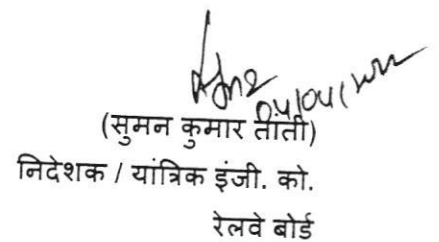 04/04/2022
(सुमन कुमार ताँती)
निदेशक / यांत्रिक इंजी. को.
रेलवे बोर्ड